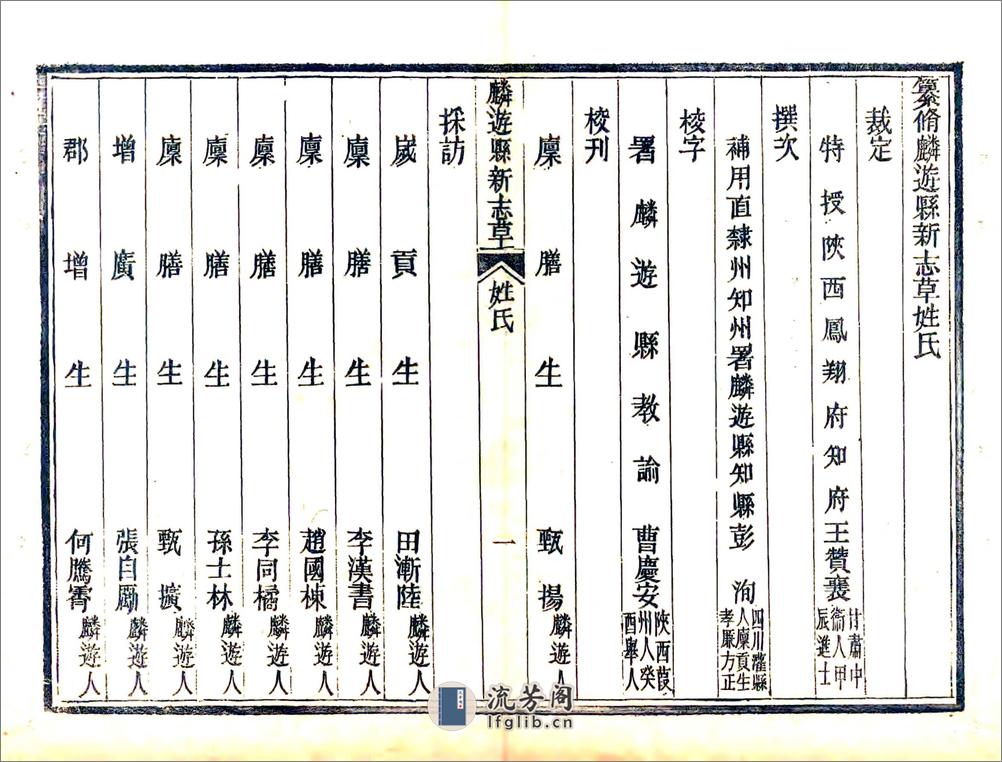 纂脩麟遊縣新志草姓氏
裁定
特授陝西鳳翔府知府王贊襄甘肅中衞人甲辰進士
撰次
補用直隸州知州署麟遊縣知縣彭洵四川灌縣人廩貢生孝廉方正
校字
署麟遊縣教諭曹慶安陝西葭州人癸酉舉人
校刊
廩膳生甄揚麟遊人
麟遊縣新志草 姓氏 一
採訪
歲貢生田漸陸麟遊人
廩膳生李漢書麟遊人
廩膳生趙國棟麟遊人
廩膳生李同橘麟遊人
廩膳生孫士林麟遊人
廩膳生甄擴麟遊人
增廣生張自勵麟遊人
郡增生何騰霄麟遊人
流芳阁
lfglib.cn